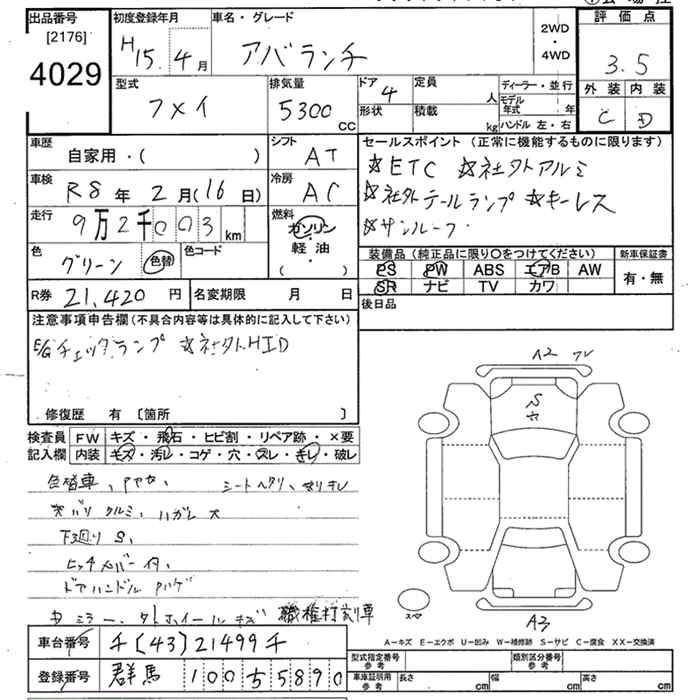 出品番号
[2176]
4029
初度登録年月
H15. 4月
車名・グレード
アバランチ
2WD
・
4WD
評価点
3.5
外装 内装
C D
型式
フメイ
排気量
5300 CC
ドア 4
形状
定員 人
積載 kg
ディーラー・並行
モデル年式 年
ハンドル 左・右
車歴
自家用・( )
シフト
AT
車検
R8年 2月(16日)
冷房
AC
走行
9万2千003 km
燃料
ガソリン
軽・油
( ・ )
色
グリーン 色替
色コード
R券 21,420 円
名変期限 月 日
セールスポイント (正常に機能するものに限ります)
☆ETC ☆社外アルミ
☆社外テールランプ ☆キーレス
☆サンルーフ
装備品 (純正品に限り〇をつけてください)
PS PW ABS エアB AW
SR ナビ TV カワ
新車保証書
有・無
後日品
注意事項申告欄 (不具合内容等は具体的に記入して下さい)
E/Gチェックランプ ☆社外HID
修復歴 有 [箇所 ]
検査員 記入欄
FW キズ・飛石・ヒビ割・リペア跡・×要
内装 キズ・汚レ・コゲ・穴・スレ・キレ・破レ
色替車、 シートヘタリ、
天バリ クルミ、ハガレ大
下廻りS、
ヒッチメンバー付、
ドアハンドル
ミラー、タイヤホイールキズ 職権打刻
A2
S
A3
スペア
A−キズ E−エクボ U−凹み W−補修跡 S−サビ C−腐食 XX−交換済
車台番号 千[43]21499千
登録番号 群馬 100 55890
型式指定番号 参考
類別区分番号 参考
車庫証明用 参考
長さ cm 幅 cm 高さ cm